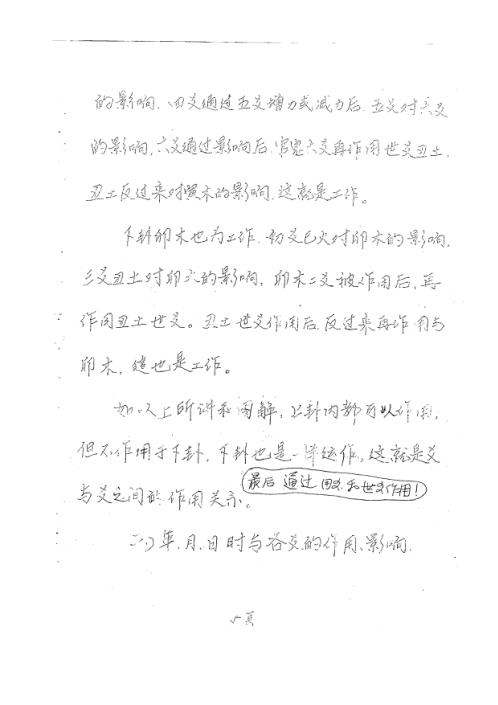 的影响，四爻通过五爻增力或减力后，五爻对六爻
的影响，六爻通过影响后，官鬼六爻再作用世爻丑土，
丑土反过来对寅木的影响，这就是工作。
下卦卯木也为工作，初爻巳火对卯木的影响，
三爻丑土对卯木的影响，卯木二爻被作用后，再
作用丑土世爻。丑土世爻作用后，反过来再作用与
卯木，这也是工作。
如以上所讲和图解，上卦内都可以作用，
但不作用于下卦，下卦也是一样运作，这就是爻
与爻之间的作用关系。
最后通过四爻和世爻作用！
二〉年、月、日时与各爻的作用、影响，
5页